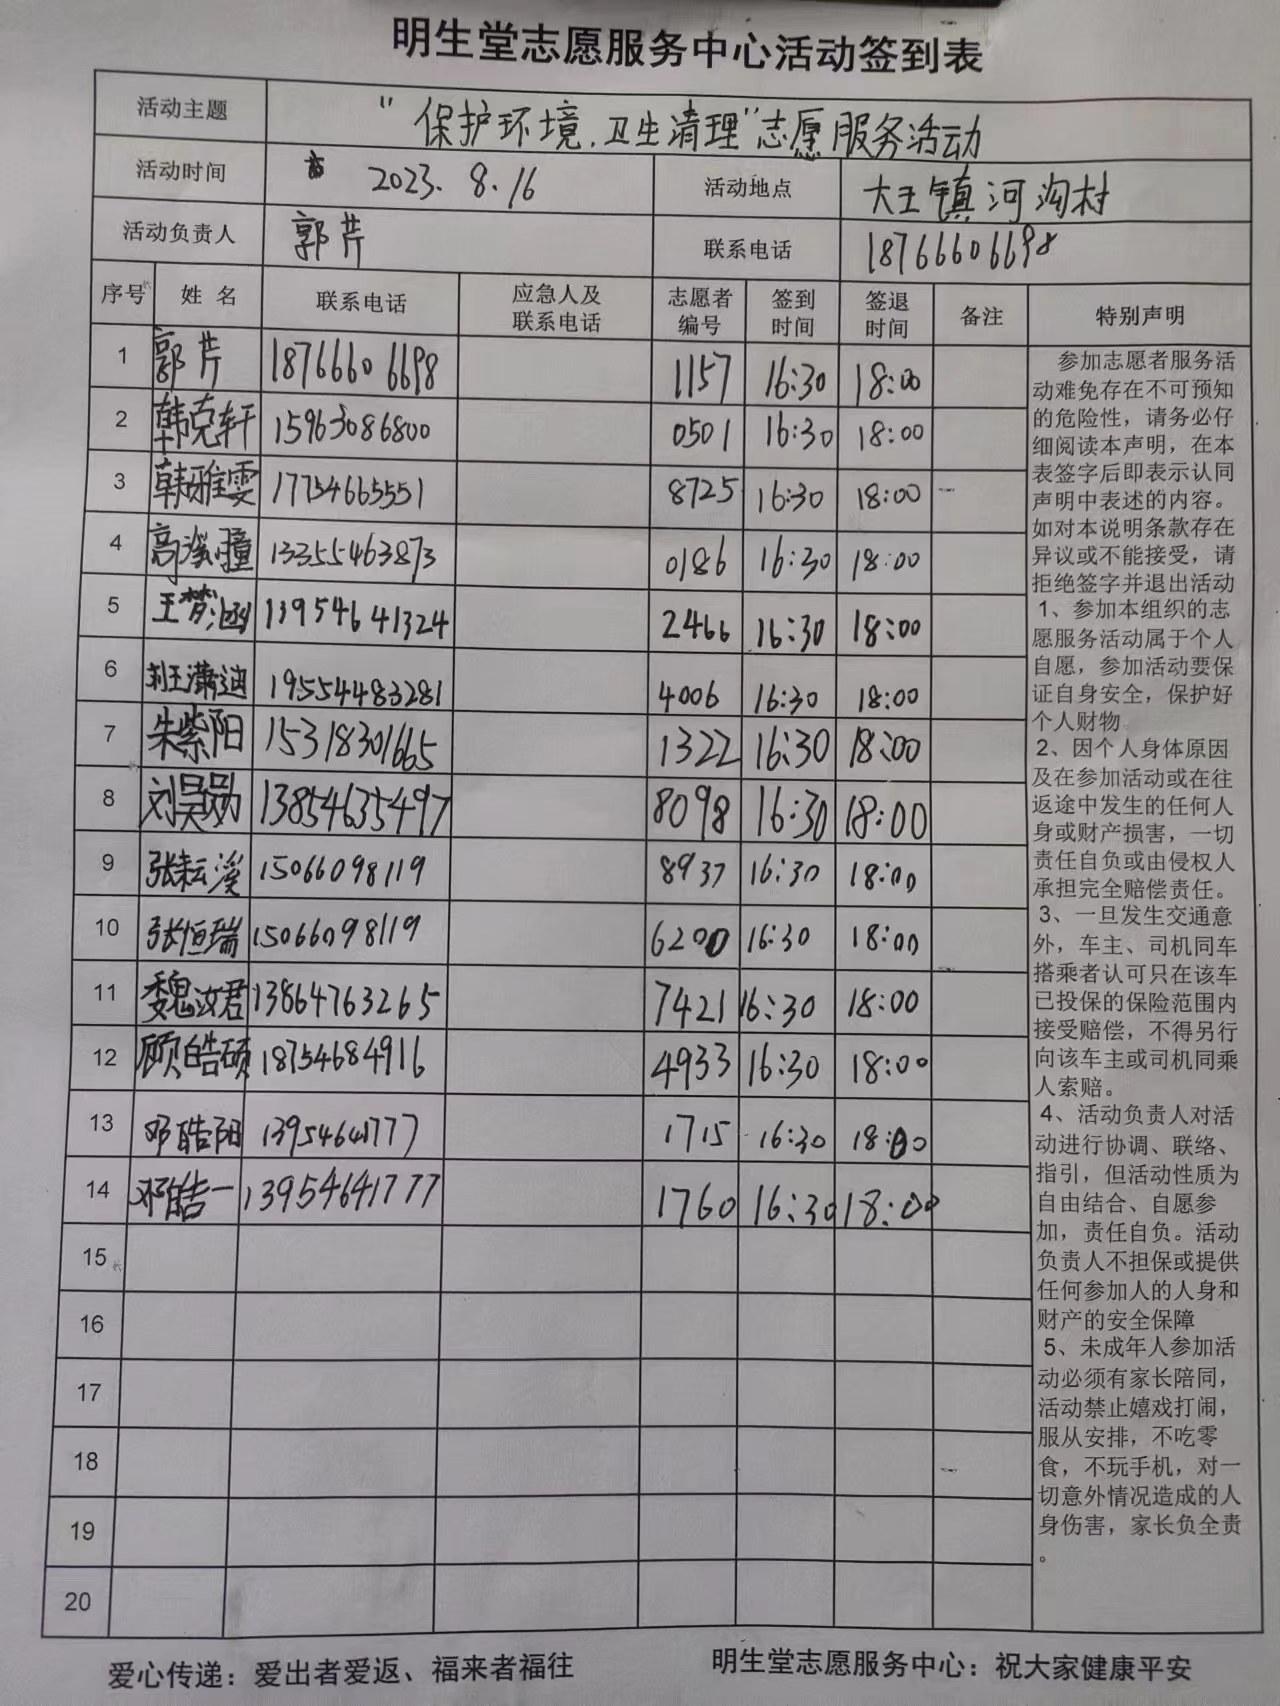 明生堂志愿服务中心活动签到表
活动主题 “保护环境.卫生清理”志愿服务活动
活动时间 2023.8.16 活动地点 大王镇河沟村
活动负责人 郭芹 联系电话 18766606698
序号 姓名 联系电话 应急人及联系电话 志愿者编号 签到时间 签退时间 备注 特别声明
1 郭芹 18766606698 1157 16:30 18:00
2 韩克轩 15963086800 0501 16:30 18:00
3 韩雅雯 17754665551 8725 16:30 18:00
4 高溪瞳 13355463873 0186 16:30 18:00
5 王梦涵 13954641324 2466 16:30 18:00
6 刘王潇迪 19554483281 4006 16:30 18:00
7 朱紫阳 15318301665 1322 16:30 18:00
8 刘昊勋 13854635497 8098 16:30 18:00
9 张耘溪 15066098119 8937 16:30 18:00
10 张恒瑞 15066098119 6200 16:30 18:00
11 魏汝君 13864763265 7421 16:30 18:00
12 顾皓硕 18754684916 4933 16:30 18:00
13 邓皓阳 13954641777 1715 16:30 18:00
14 邓皓一 13954641777 1760 16:30 18:00
15
16
17
18
19
20
参加志愿者服务活
动难免存在不可预知
的危险性，请务必仔
细阅读本声明，在本
表签字后即表示认同
声明中表述的内容。
如对本说明条款存在
异议或不能接受，请
拒绝签字并退出活动
1、参加本组织的志
愿服务活动属于个人
自愿，参加活动要保
证自身安全，保护好
个人财物。
2、因个人身体原因
及在参加活动或在往
返途中发生的任何人
身或财产损害，一切
责任自负或由侵权人
承担完全赔偿责任。
3、一旦发生交通意
外，车主、司机同车
搭乘者认可只在该车
已投保的保险范围内
接受赔偿，不得另行
向该车主或司机同乘
人索赔。
4、活动负责人对活
动进行协调、联络、
指引，但活动性质为
自由结合、自愿参
加，责任自负。活动
负责人不担保或提供
任何参加人的人身和
财产的安全保障
5、未成年人参加活
动必须有家长陪同，
活动禁止嬉戏打闹，
服从安排，不吃零
食，不玩手机，对一
切意外情况造成的人
身伤害，家长负全责
。
爱心传递：爱出者爱返、福来者福往 明生堂志愿服务中心：祝大家健康平安